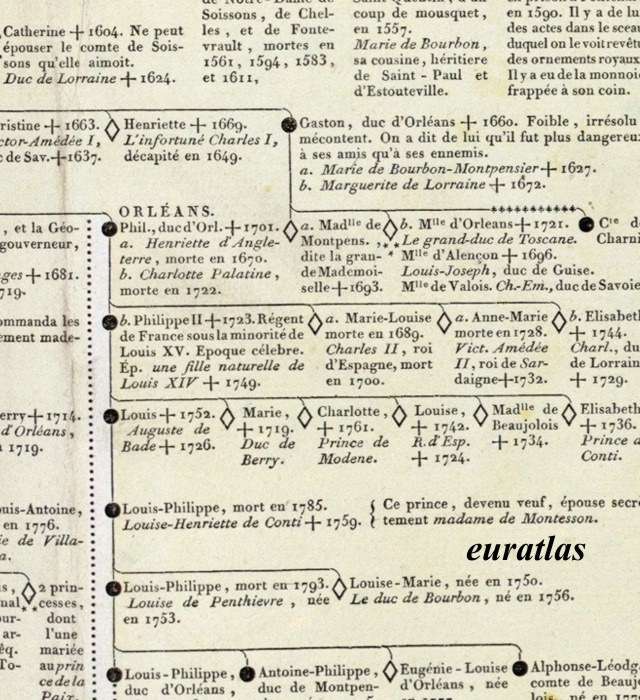 Catherine + 1604. Ne peut
épouser le comte de Sois-
sons qu'elle aimoit.
Duc de Lorraine + 1624.
Soissons, de Chel-
les, et de Fonte-
vrault, mortes en
1561, 1594, 1583,
et 1611,
coup de mousquet,
en 1557.
Marie de Bourbon,
sa cousine, héritiere
de Saint-Paul et
d'Estouteville.
en 1590. Il y a de lu
des actes dans le sceau
duquel on le voit revêtu
des ornements royaux
Il y a eu de la monnoie
frappée à son coin.
ristine + 1663.
ctor-Amédée I,
c de Sav. + 1637.
Henriette + 1669.
L'infortuné Charles I,
décapité en 1649.
Gaston, duc d'Orléans + 1660. Foible, irrésolu
mécontent. On a dit de lui qu'il fut plus dangereu
à ses amis qu'à ses ennemis.
a. Marie de Bourbon-Montpensier + 1627.
b. Marguerite de Lorraine + 1672.
, et la Géo-
gouverneur,
ges + 1681.
719.
ORLÉANS.
Phil., duc d'Orl. + 1701.
a. Henriette d'Angle-
terre, morte en 1670.
b. Charlotte Palatine,
morte en 1722.
a. Madlle de
Montpens.,
dite la gran-
de Mademoi-
selle + 1693.
b. Mlle d'Orleans + 1721.
Le grand-duc de Toscane.
Mlle d'Alençon + 1696.
Louis-Joseph, duc de Guise.
Mlle de Valois. Ch-Em., duc de Savoie
Cte de
Charni
ommanda les
ement made-
b. Philippe II + 1723. Régent
de France sous la minorité de
Louis XV. Epoque célebre.
Ép. une fille naturelle de
Louis XIV + 1749.
a. Marie-Louise
morte en 1689.
Charles II, roi
d'Espagne, mort
en 1700.
a. Anne-Marie
morte en 1728.
Vict. Amédée
II, roi de Sar-
daigne + 1732.
b. Elisabeth
+ 1744.
Charl., du
de Lorrain
+ 1729.
erry + 1714.
d'Orléans,
n 1719.
Louis + 1752.
Auguste de
Bade + 1726.
Marie,
+ 1719.
Duc de
Berry.
Charlotte,
+ 1761.
Prince de
Modene.
Louise,
+ 1742.
R. d'Esp.
+ 1724.
Madlle de
Beaujolois
+ 1734.
Elisabeth
+ 1736.
Prince d
Conti.
ouis-Antoine,
en 1776.
ie de Villa-
a.
Louis-Philippe, mort en 1785.
Louise-Henriette de Conti + 1759.
{ Ce prince, devenu veuf, épouse secré
tement madame de Montesson.
euratlas
2 prin-
cesses,
dont
l'une
mariée
au prin
ce de la
Paix.
Louis-Philippe, mort en 1793.
Louise de Penthievre, née
en 1753.
Louise-Marie, née en 1750.
Le duc de Bourbon, né en 1756.
Louis-Philippe,
duc d'Orléans,
Antoine-Philippe,
duc de Montpen-
Eugénie-Louise
d'Orléans, née
Alphonse-Léodg
comte de Beauj